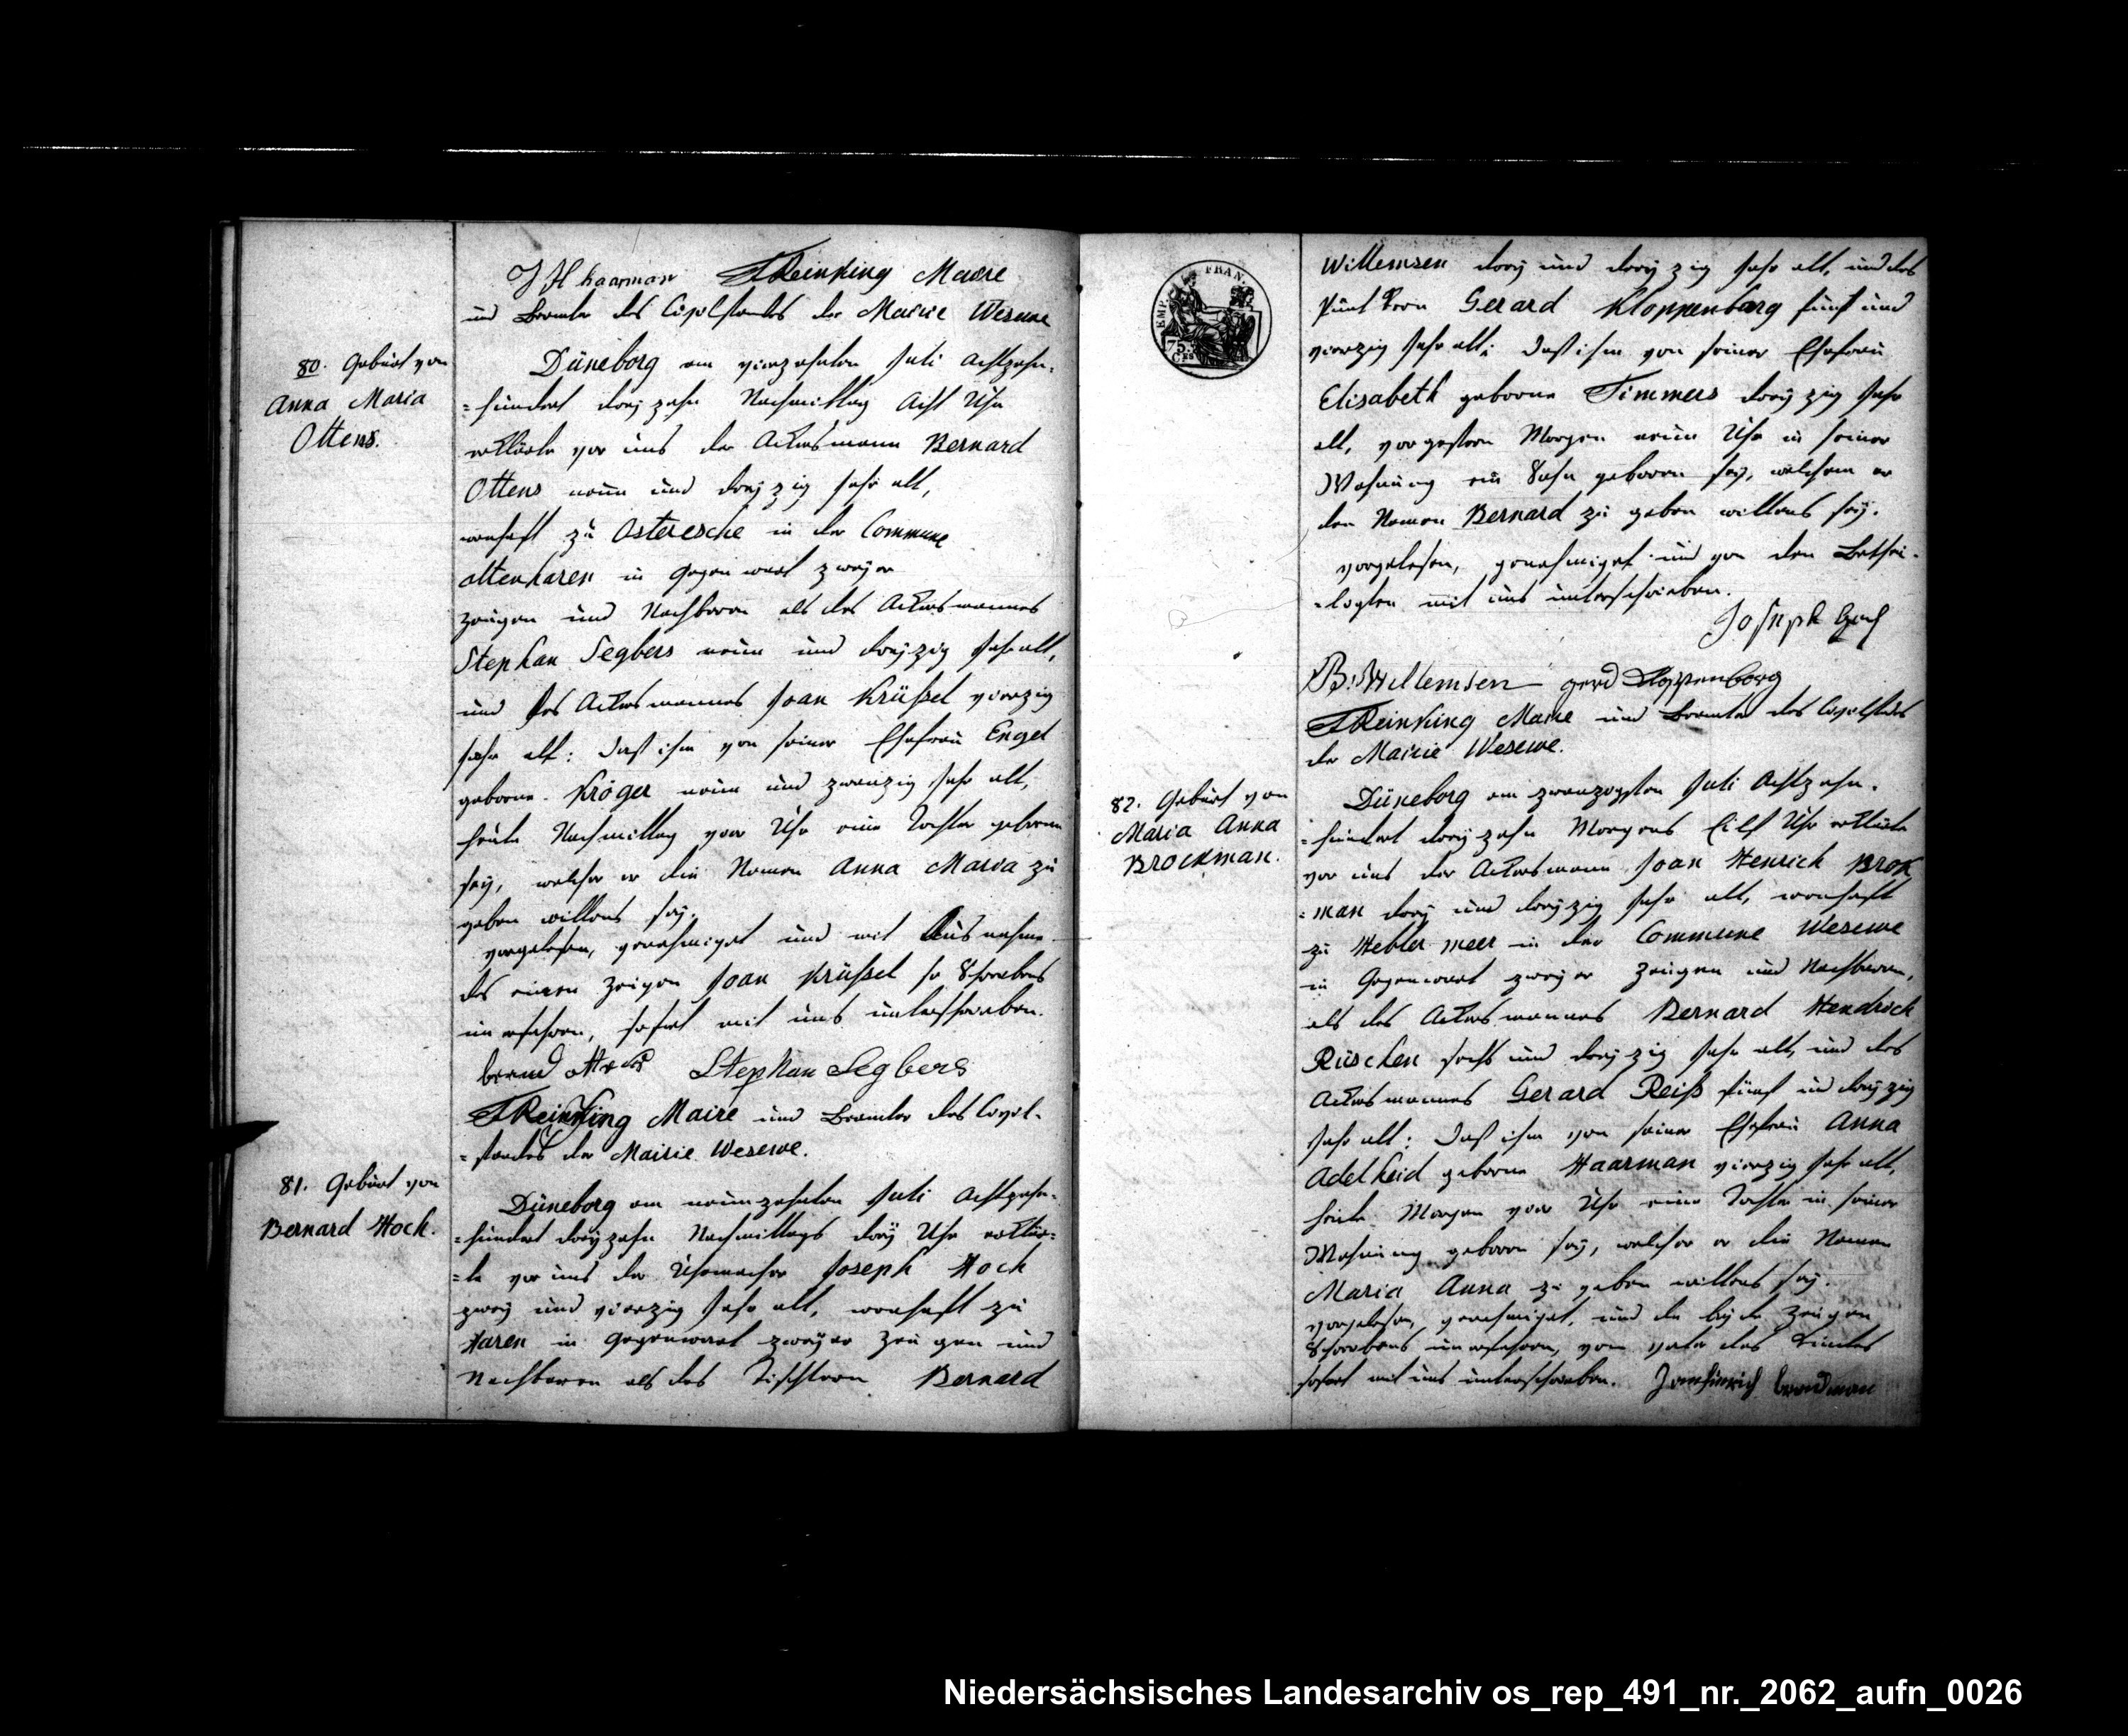 J H haarman TReinking Maire
und Beamter des Civilstandes der Mairie Wesuwe
80. Geburt von
Anna Maria
Ottens.
Düneborg am vierzehnten Juli Achtzehn-
=hundert dreyzehn Nachmittag Acht Uhr
erklärte vor uns der Ackersmann Bernard
Ottens neun und dreyzig Jahr alt,
wonhaft zu Osteresche in der Commune
Altenharen in Gegenwart zweyer
Zeugen und Nachbaren als des Ackersmannes
Stephan Segbers neun und dreyzig Jahr alt,
und des Ackersmannes Joan Krüßel vierzig
Jahr alt: daß ihm von seiner Ehefrau Engel
geborne Kröger neun und zwanzig Jahr alt,
heute Nachmittag vier Uhr eine Tochter geboren
sey, welcher er die Namen Anna Maria zu
geben willens sey.
vorgelesen, genehmiget und mit Ausnahme
des einen Zeugen Joan Krüßel so Schreibens
unerfahren, sofort mit uns unterschrieben.
bernd ottens Stephan Segbers
TReinking Maire und Beamter des Civil-
=standes der Mairie Wesuwe.
81. Geburt von
Bernard Hock.
Düneborg am neunzehnten Juli Achtzehn-
=hundert dreyzehn Nachmittags drey Uhr erklär-
=te vor uns der Uhrmacher Joseph Hock
zwey und vierzig Jahr alt, wonhaft zu
Haren in Gegenwart zweyer Zeugen und
Nachbaren als des Tischlern Bernard
EMP. FRAN.
75.
CES
Willemsen drey und dreyzig Jahr alt, und des
Gerard Kloppenborg fünf und
vierzig Jahr alt; daß ihm von seiner Ehefrau
Elisabeth geborne Timmers dreyzig Jahr
alt, vorgestern Morgen neun Uhr in seiner
Wohnung ein Sohn geboren sey, welchem er
den Namen Bernard zu geben willens sey.
vorgelesen, genehmiget und von den Bethei-
=ligten mit uns unterschrieben.
Joseph Hock
B: Willemsen gerd Kloppenborg
TReinking Maire und Beamter des Civilstandes
der Mairie Wesuwe.
82. Geburt von
Maria Anna
Brockman.
Düneborg am zwanzigsten Juli Achtzehn-
=hundert dreyzehn Morgens Eilf Uhr erklärte
vor uns der Ackersmann Joan Henrich Brok
=man drey und dreyzig Jahr alt, wonhaft
zu Hebler meer in der Commune Wesuwe
in Gegenwart zweyer Zeugen und Nachbaren,
als des Ackersmannes Bernard Hendrick
Rüschen sechs und dreyzig Jahr alt, und des
Ackersmannes Gerard Reiß fünf und dreyzig
Jahr alt: daß ihm von seiner Ehefrau Anna
Adelheid geborne Haarman vierzig Jahr alt,
heute Morgen vier Uhr eine Tochter in seiner
Wohnung geboren sey, welcher er die Namen
Maria Anna zu geben willens sey.
vorgelesen, genehmiget, und da beyde Zeugen
Schreibens unerfahren, vom Vater des Kindes
sofort mit uns unterschrieben. Janhinrich brockman
Niedersächsisches Landesarchiv os_rep_491_nr._2062_aufn_0026